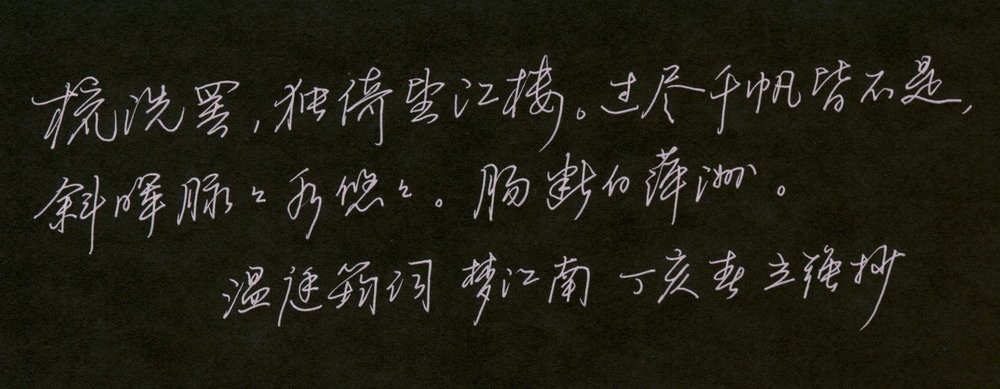 梳洗罢，独倚望江楼。过尽千帆皆不是，
斜晖脉々水悠々。肠断白蘋洲。
温庭筠词 梦江南 丁亥春 立强抄